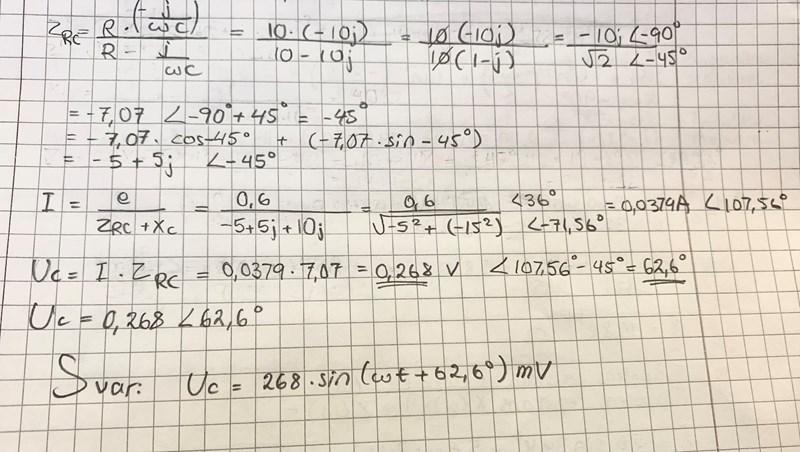 Z_RC = R · (-j/ωC) / (R - j/ωC) = 10 · (-10j) / (10 - 10j) = 10(-10j) / 10(1-j) = -10j ∠-90° / √2 ∠-45°
= -7,07 ∠-90° + 45° = -45°
= -7,07 · cos-45° + (-7,07 · sin-45°)
= -5 + 5j ∠-45°
I = e / (Z_RC + X_C) = 0,6 / (-5+5j+10j) = 0,6 ∠36° / √(-5² + (-15²)) ∠-71,56° = 0,0379A ∠107,56°
U_C = I · Z_RC = 0,0379 · 7,07 = 0,268 V ∠107,56° - 45° = 62,6°
U_C = 0,268 ∠62,6°
Svar: U_C = 268 · sin(ωt + 62,6°) mV